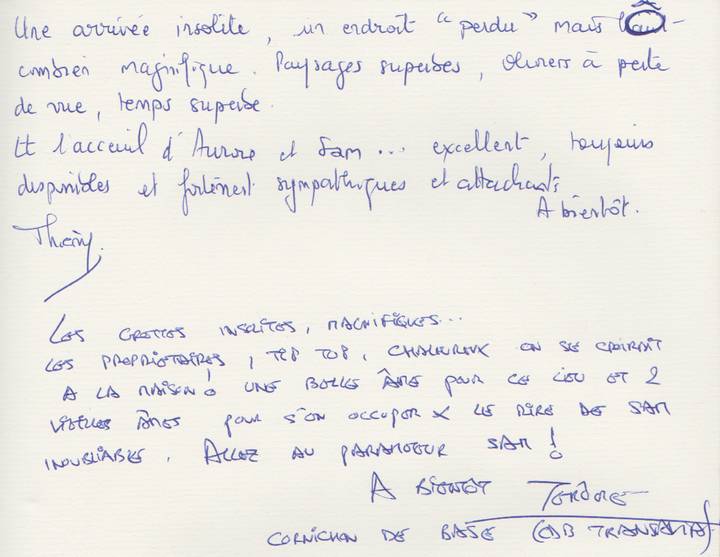 Une arrivée insolite, un endroit "perdu" mais ô
combien magnifique. Paysages superbes, oliviers à perte
de vue, temps superbe.
Et l'acceuil d'Aurore et Sam... excellent, toujours
disponibles et fortement sympathiques et attachants.
A bientôt.
Thierry.
LES GROTTES INSOLITES, MAGNIFIQUES...
LES PROPRIETAIRES, TOP TOP, CHALEUREUX ON SE CROIRAIT
A LA MAISON! UNE BELLE ÂME POUR CE LIEU ET 2
VIEILLES ÂMES POUR S'EN OCCUPER & LE RIRE DE SAM
INOUBLIABLE. ALLEZ AU PARAMOTEUR SAM!
A BIENTÔT
CORNICHON DE BASE